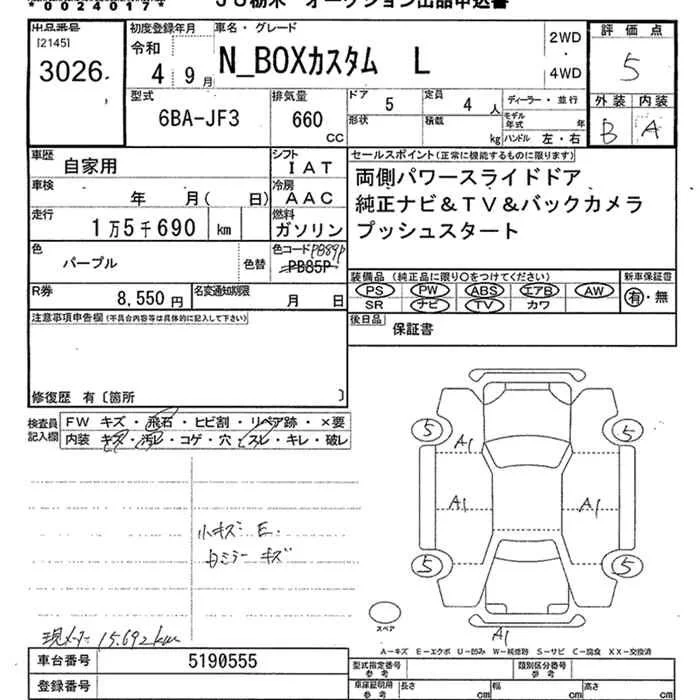 *00240017* JU栃木 オークション出品申込書
出品番号
[2145]
3026
初度登録年月
令和
4 9月
車名・グレード
N_BOXカスタム L
2WD
・
4WD
評価点
5
外装 内装
B A
型式
6BA-JF3
排気量
660
CC
ドア 5
定員 4 人
形状
積載 kg
ディーラー・並行
モデル年式 年
ハンドル 左・右
車歴 自家用
シフト IAT
車検 年 月( 日)
冷房 AAC
走行 1万5千690 km
燃料 ガソリン
色 パープル 色替
色コード PB89P
PB85P
R券 8,550円
名変通知期限 月 日
セールスポイント(正常に機能するものに限ります)
両側パワースライドドア
純正ナビ&TV&バックカメラ
プッシュスタート
装備品 (純正品に限り○をつけてください)
PS PW ABS エアB AW
SR ナビ TV カワ
新車保証書
有・無
後日品 保証書
注意事項申告欄(不具合内容等は具体的に記入して下さい)
修復歴 有〔箇所 〕
検査員記入欄
FW キズ・飛石・ヒビ割・リペア跡・×要
内装 キズ・汚レ・コゲ・穴・スレ・キレ・破レ
小キズ E.
白ミラー キズ
現メーター 15.692km
5 5
A1
A1 A1
5 5
スペア
A1
A-キズ E-エクボ U-凹み W-補修跡 S-サビ C-腐食 XX-交換済
車台番号 5190555
登録番号
型式指定番号 参考
類別区分番号 参考
車庫証明用 参考 長さ cm 幅 cm 高さ cm